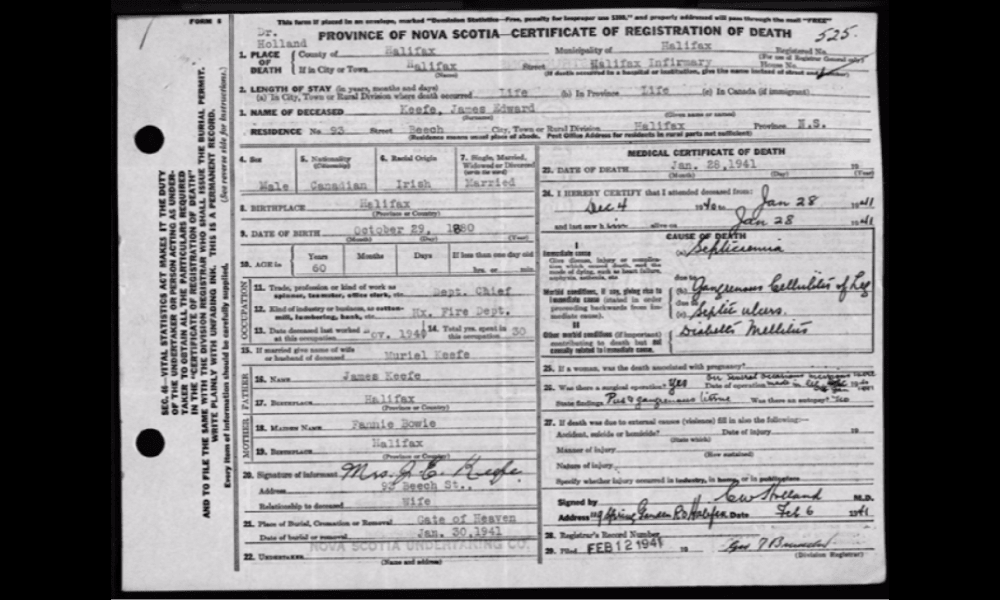 FORM 8
This form if placed in an envelope, marked "Dominion Statistics—Free, penalty for improper use $300," and properly addressed will pass through the mail "FREE"
PROVINCE OF NOVA SCOTIA—CERTIFICATE OF REGISTRATION OF DEATH
525.
Dr.
Holland
1. PLACE OF DEATH
County of Halifax Municipality of Halifax Registered No.
(For use of Registrar General only)
If in City or Town Halifax Street Halifax Infirmary House No.
(Name) (If death occurred in a hospital or institution, give the name instead of street and
2. LENGTH OF STAY (in years, months and days)
(a) In City, Town or Rural Division where death occurred Life (b) In Province Life (c) In Canada (if immigrant)
3. NAME OF DECEASED Keefe, James Edward
(Surname) (Given name or names)
RESIDENCE No 93 Street Beech City, Town or Rural Division Halifax Province N.S.
(Residence means usual place of abode. Post Office Address for residents in rural parts not sufficient)
SEC. 46—VITAL STATISTICS ACT MAKES IT THE DUTY
OF THE UNDERTAKER OR PERSON ACTING AS UNDER-
TAKER TO OBTAIN ALL THE PARTICULARS REQUIRED
IN THE "CERTIFICATE OF REGISTRATION OF DEATH"
AND TO FILE THE SAME WITH THE DIVISION REGISTRAR WHO SHALL ISSUE THE BURIAL PERMIT.
WRITE PLAINLY WITH UNFADING INK. THIS IS A PERMANENT RECORD.
Every item of information should be carefully supplied. (See reverse side for instructions.)
4. Sex 5. Nationality (Citizenship) 6. Racial Origin 7. Single, Married, Widowed or Divorced (write the word)
Male Canadian Irish Married
8. BIRTHPLACE Halifax
(Province or Country)
9. DATE OF BIRTH October 29, 1880
(Month) (Day) (Year)
10. AGE in Years Months Days If less than one day old
60 hrs. or min.
OCCUPATION
11. Trade, profession or kind of work as
spinner, teamster, office clerk, etc. Dept. Chief
12. Kind of industry or business, as cotton-
mill, lumbering, bank, etc. Hx. Fire Dept.
13. Date deceased last worked at this occupation ov. 1940 14. Total yrs. spent in this occupation 30
15. If married give name of wife
or husband of deceased Muriel Keefe
FATHER
16. Name James Keefe
17. Birthplace Halifax
(Province or Country)
MOTHER
18. Maiden Name Fannie Bowie
19. Birthplace Halifax
(Province or Country)
20. Signature of informant Mrs. J. E. Keefe
Address 93 Beech St.,
Relationship to deceased Wife
21. Place of Burial, Cremation or Removal Gate of Heaven
Date of burial or removal Jan. 30, 1941
22. Undertaker NOVA SCOTIA UNDERTAKING CO.
(Name and address)
MEDICAL CERTIFICATE OF DEATH
23. DATE OF DEATH Jan. 28, 1941 19
(Month) (Day) (Year)
24. I HEREBY CERTIFY that I attended deceased from:
Dec 4 1940 to Jan 28 1941
and last saw h alive on Jan 28 1941
CAUSE OF DEATH
I
Immediate cause (a) Septicemia
Give disease, injury or complica-
tion which caused death, not the
mode of dying, such as heart failure,
asphyxia, asthenia, etc
due to
Morbid conditions, if any, giving rise to (b) Gangrenous Cellulitis of Leg
immediate cause (stated in order due to
proceeding backwards from im- (c) Septic ulcers.
mediate cause).
II
Other morbid conditions (if important) Diabetes Mellitus
contributing to death but not
causally related to immediate cause.
25. If a woman, was the death associated with pregnancy?
26. Was there a surgical operation? Yes Date of operation
State findings Pus & gangrenous Was there an autopsy?
27. If death was due to external causes (violence) fill in also the following:—
Accident, suicide or homicide? Date of injury 19
(State which)
Manner of injury
(How sustained)
Nature of injury
Specify whether injury occurred in industry, in home, or in public place
Signed by C W Holland M.D.
Address 119 Spring Garden Rd Halifax Date Feb 6 1941
28. Registrar's Record Number
29. Filed FEB 12 1941 19
(Division Registrar)